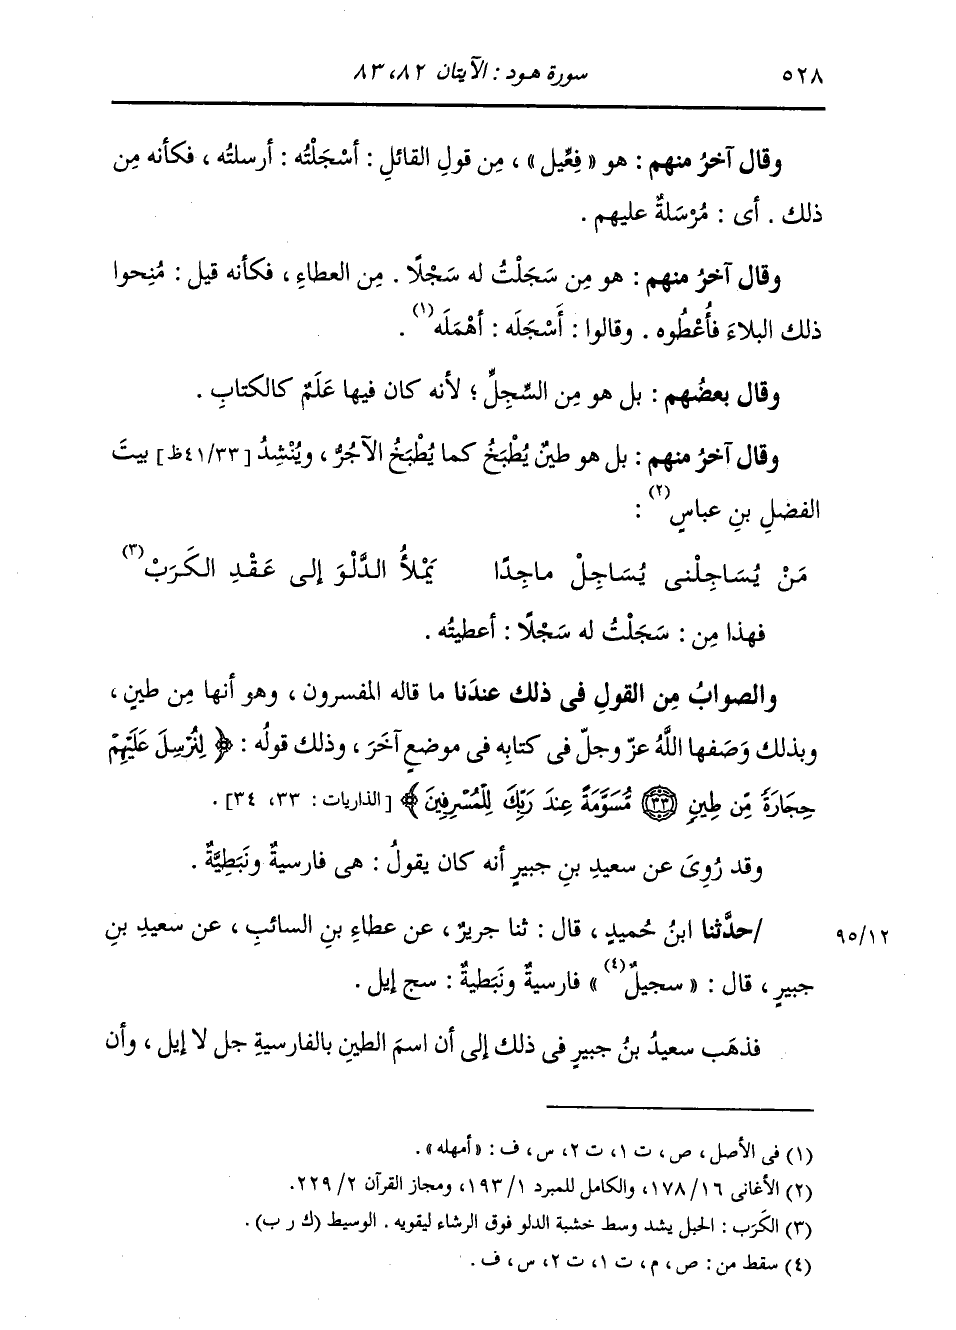 ٥٢٨ سورة هود : الآيتان ٨٢، ٨٣
وقال آخرُ منهم : هو « فِعِّيل » ، مِن قولِ القائلِ : أَسْجَلْتُه : أرسلتُه ، فكأنه مِن
ذلك . أى : مُرْسَلةٌ عليهم .
وقال آخرُ منهم : هو مِن سَجَلْتُ له سَجْلًا . مِن العطاءِ ، فكأنه قيل : مُنِحوا
ذلك البلاءَ فأُعْطُوه . وقالوا : أَسْجَلَه : أهْمَلَه(١) .
وقال بعضُهم : بل هو مِن السِّجِلِّ ؛ لأنه كان فيها عَلَمٌ كالكتابِ .
وقال آخرُ منهم : بل هو طينٌ يُطْبَخُ كما يُطْبَخُ الآجُرُّ ، ويُنْشِدُ [٤١/٣٣ظ] بيتَ
الفضلِ بنِ عباسٍ(٢) :
مَنْ يُسَاجِلْنى يُسَاجِلْ ماجِدًا يَمْلأُ الدَّلْوَ إلى عَقْدِ الكَرَبْ(٣)
فهذا مِن : سَجَلْتُ له سَجْلًا : أعطيتُه .
والصوابُ مِن القولِ فى ذلك عندَنا ما قاله المفسرون ، وهو أنها مِن طينٍ ،
وبذلك وَصَفها اللَّهُ عزّ وجلّ فى كتابِه فى موضعٍ آخَرَ ، وذلك قولُه : ﴿ لِنُرْسِلَ عَلَيْهِمْ
حِجَارَةً مِّن طِينٍ ٣٣ مُّسَوَّمَةً عِندَ رَبِّكَ لِلْمُسْرِفِينَ ﴾ [الذاريات : ٣٣، ٣٤] .
وقد رُوِىَ عن سعيدِ بنِ جبيرٍ أنه كان يقولُ : هى فارسيةٌ ونَبَطِيَّةٌ .
٩٥/١٢ /حدَّثنا ابنُ حُميدٍ ، قال : ثنا جريرٌ ، عن عطاءِ بنِ السائبِ ، عن سعيدِ بنِ
جبيرٍ ، قال : « سجيلٌ(٤) » فارسيةٌ ونَبَطيةٌ : سج إيل .
فذهَب سعيدُ بنُ جبيرٍ فى ذلك إلى أن اسمَ الطينِ بالفارسيةِ جل لا إيل ، وأن
(١) فى الأصل ، ص ، ت ١، ت ٢، س ، ف : «أمهله» .
(٢) الأغانى ١٦/ ١٧٨، والكامل للمبرد ١/ ١٩٣، ومجاز القرآن ٢/ ٢٢٩.
(٣) الكَرَب : الحبل يشد وسط خشبة الدلو فوق الرشاء ليقويه . الوسيط (ك ر ب) .
(٤) سقط من : ص ، م ، ت ١، ت ٢، س ، ف .